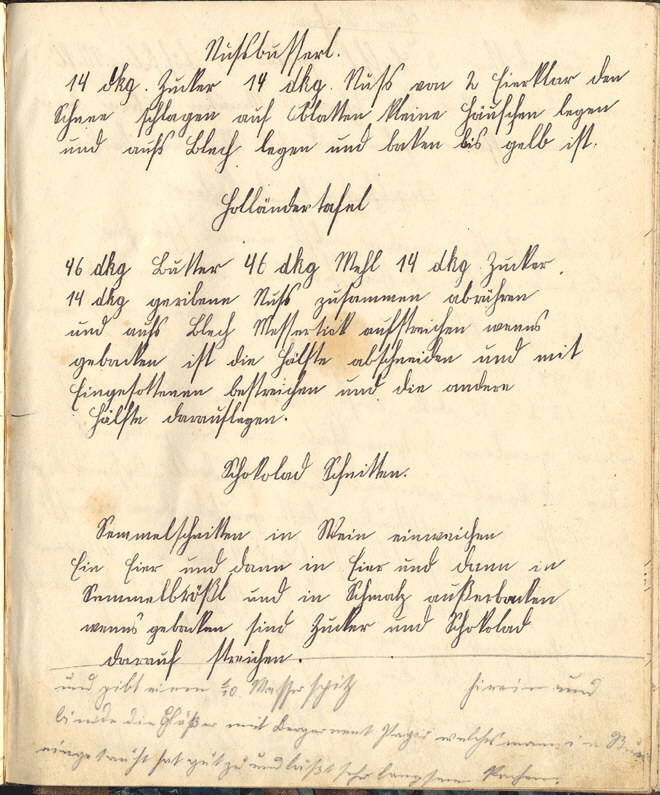 Nussbusserl.
14 dkg. Zucker 14 dkg. Nuss von 2 Eierklar den
Schnee schlagen auf Oblatten kleine Häufchen legen
und aufs Blech legen und baken bis gelb ist.
Holländertafel
46 dkg Butter 46 dkg Mehl 14 dkg. Zucker.
14 dkg geribene Nuss zusammen abrühren
und aufs Blech Messertick aufstreichen wenns
gebacken ist die Hälfte abschneiden und mit
Eingesottenen bestreichen und die andere
Hälfte darauflegen.
Schokolad Schnitten.
Semmelschnitten in Wein einweichen
Ein Eier und dann in Eier und dann in
Semmelbrößl und in Schmalz außerbacken
wenns gebacken sind Zucker und Schokolad
darauf streichen.
und gibt einen Wasser hinein und
binde die Gläßer mit Pergament Papir welches man in
eingetaucht hat gut zu und läßt sehr langsam kochen.